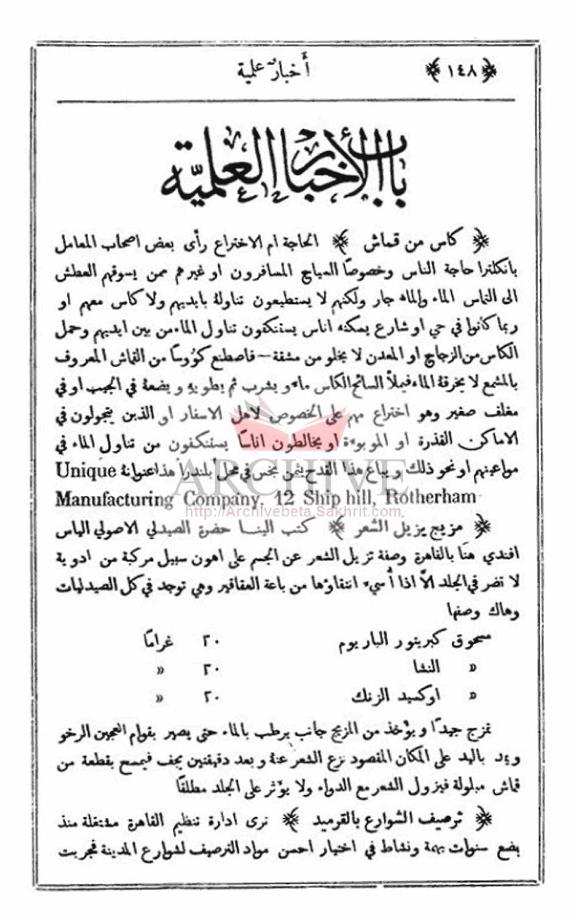 ﴿ ١٤٨ ﴾ أخبار علمية
باب الأخبار العلمية
﴿ كاس من قماش ﴾ الحاجة ام الاختراع رأى بعض اصحاب المعامل
بانكلترا حاجة الناس وخصوصاً السياح المسافرون او غيرهم ممن يسوقهم العطش
الى التماس الماء والماء جار ولكنهم لا يستطيعون تناولة بايديهم ولا كاس معهم او
ربما كانوا في حي او شارع يسكنه اناس يستنكفون تناول الماء من بين ايديهم وحمل
الكاس من الزجاج او المعدن لا يخلو من مشقة – فاصطنع كؤوسا من القماش المعروف
بالمشمع لا يخرقة الماء فيملأ السائح الكاس ماء و يشرب ثم يطويه و يضعة في الجيب او في
مغلف صغير وهو اختراع مهم على الخصوص لاهل الاسفار او الذين يتجولون في
الاماكن القذرة او الموبوءة او يخالطون اناساً يستنكفون من تناول الماء في
مواعينهم او نحو ذلك ويباع هذا القدح بثمن بخس في محل بلندرا هذا عنوانة Unique
Manufacturing Company, 12 Ship hill, Rotherham
ARCHIVE
http://Archivebeta.Sakhrit.com
﴿ مزيج يزيل الشعر ﴾ كتب الينا حضرة الصيدلي الاصولي الياس
افندي هنا بالقاهرة وصفة تزيل الشعر عن الجسم على اهون سبيل مركبة من ادوية
لا تضر في الجلد الاّ اذا أسيء انتقاؤها من باعة العقاقير وهي توجد في كل الصيدليات
وهاك وصفها
مسحوق كبريتور الباريوم ٢٠ غراماً
« النشا ٢٠ «
« اوكسيد الزنك ٢٠ «
تمزج جيداً و يؤخذ من المزيج جانب يرطب بالماء حتى يصير بقوام العجين الرخو
ويمد باليد على المكان المقصود نزع الشعر عنة و بعد دقيقتين يجف فيمسح بقطعة من
قماش مبلولة فيزول الشعر مع الدواء ولا يؤثر على الجلد مطلقاً
﴿ ترصيف الشوارع بالقرميد ﴾ نرى ادارة تنظيم القاهرة مشتغلة منذ
بضع سنوات بهمة ونشاط في اختيار احسن مواد الترصيف لشوارع المدينة فجربت